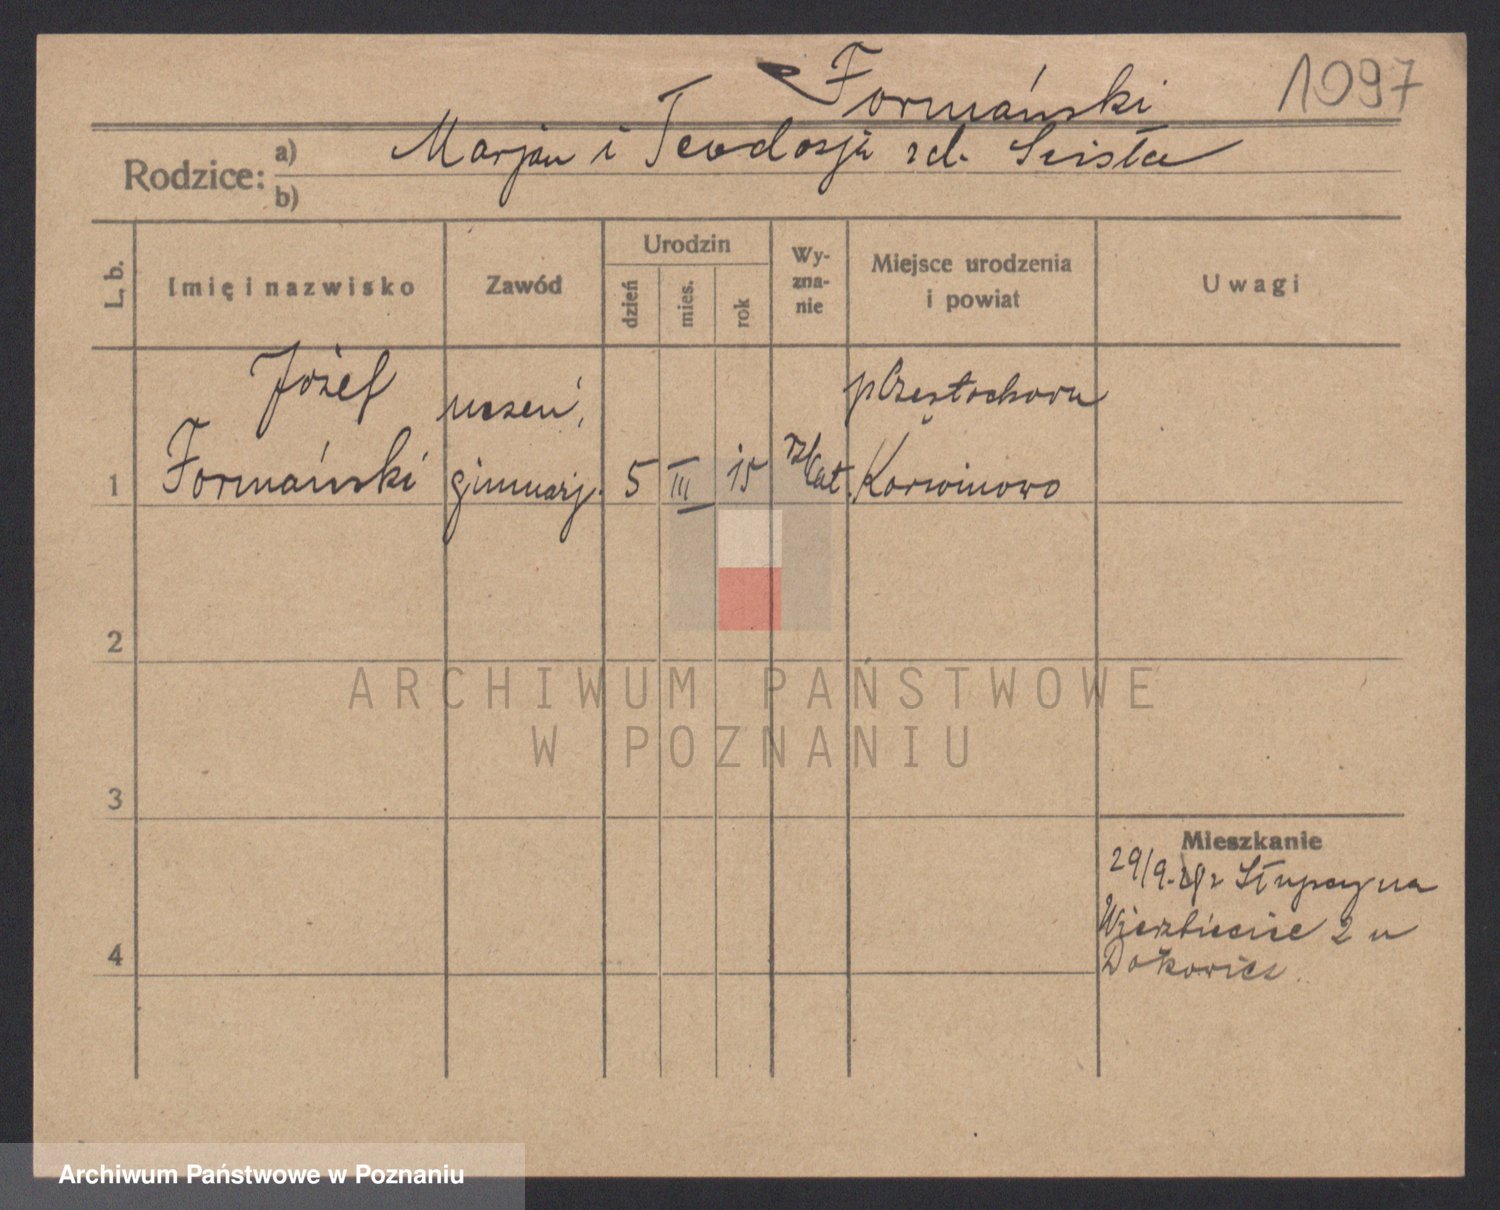 Formański
1097
Rodzice:
a) Marjan i Teodozja zd. Ścisła
b)
L. b.
Imię i nazwisko
Zawód
Urodzin
dzień
mies.
rok
Wy-
zna-
nie
Miejsce urodzenia
i powiat
Uwagi
Józef uczeń, p Częstochowa
1 Formański gimnazj. 5 III 15 rz/kat. Korwinowo
2
ARCHIWUM PAŃSTWOWE
W POZNANIU
3
Mieszkanie
29/9. r Słupcy na
Wierzbiecice 2 u
4
Archiwum Państwowe w Poznaniu